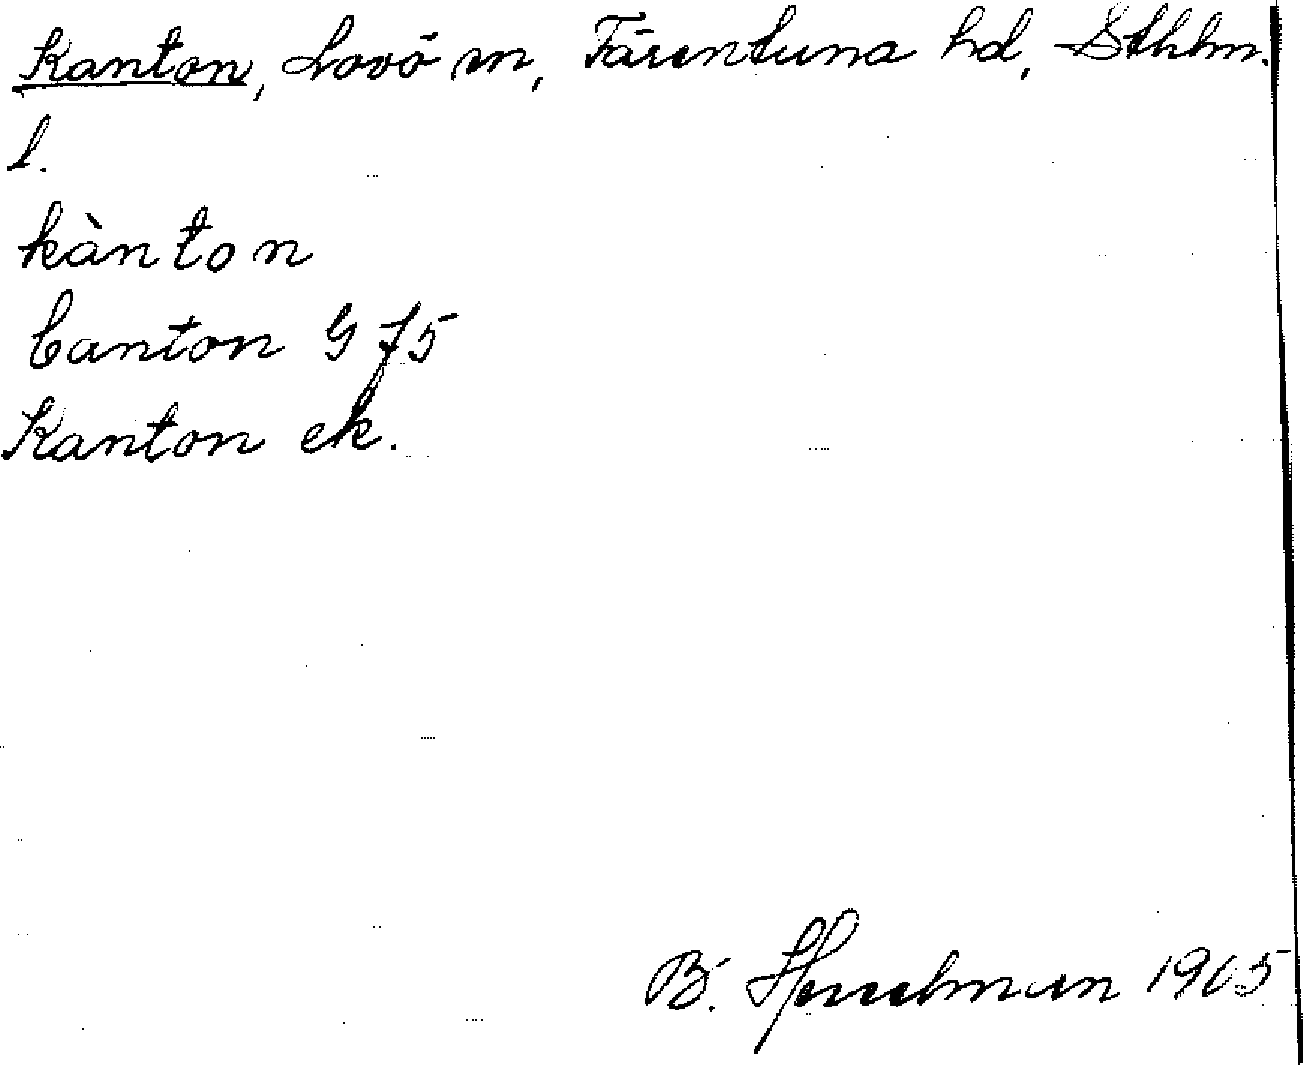 Kanton, Lovö sn, Färentuna hd, Sthlm.
l.
kànton
Canton G 75
Kanton ek.
B. Hesselman 1905